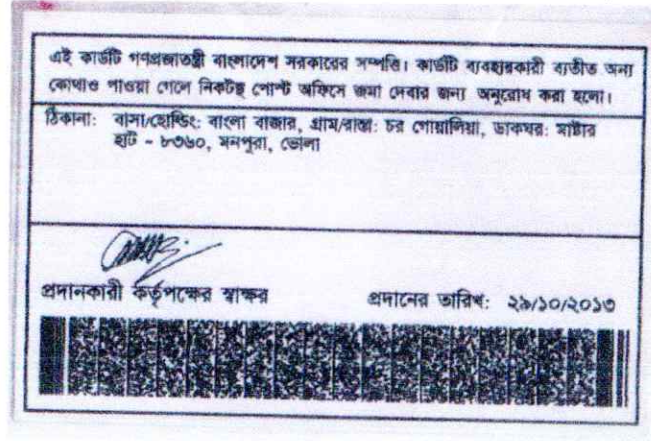 এই কার্ডটি গণপ্রজাতন্ত্রী বাংলাদেশ সরকারের সম্পত্তি। কার্ডটি ব্যবহারকারী ব্যতীত অন্য
কোথাও পাওয়া গেলে নিকটস্থ পোস্ট অফিসে জমা দেবার জন্য অনুরোধ করা হলো।
ঠিকানা: বাসা/হোল্ডিং: বাংলা বাজার, গ্রাম/রাস্তা: চর গোয়ালিয়া, ডাকঘর: মাষ্টার
হাট - ৮৩৬০, মনপুরা, ভোলা
প্রদানকারী কর্তৃপক্ষের স্বাক্ষর প্রদানের তারিখ: ২৯/১০/২০১৩